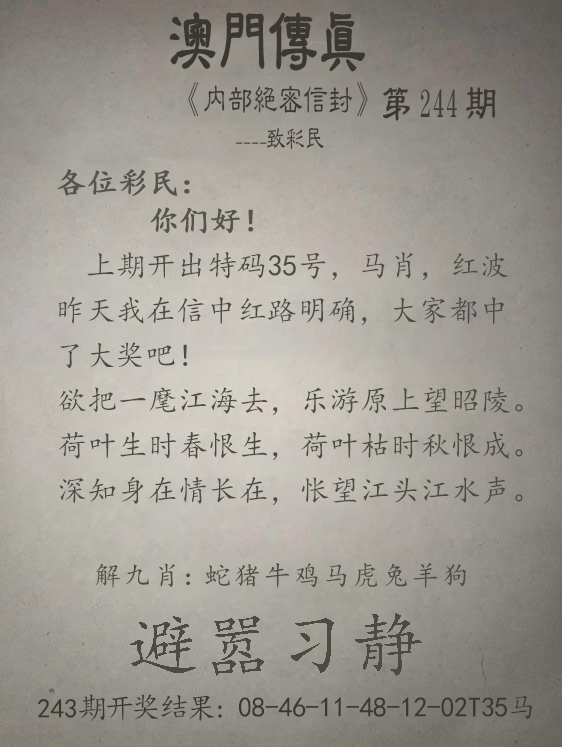 澳門傳眞
《内部絕密信封》第244期
----致彩民
各位彩民：
你们好！
上期开出特码35号，马肖，红波
昨天我在信中红路明确，大家都中
了大奖吧！
欲把一麾江海去，乐游原上望昭陵。
荷叶生时春恨生，荷叶枯时秋恨成。
深知身在情长在，怅望江头江水声。
解九肖：蛇猪牛鸡马虎兔羊狗
避嚣习静
243期开奖结果：08-46-11-48-12-02T35马